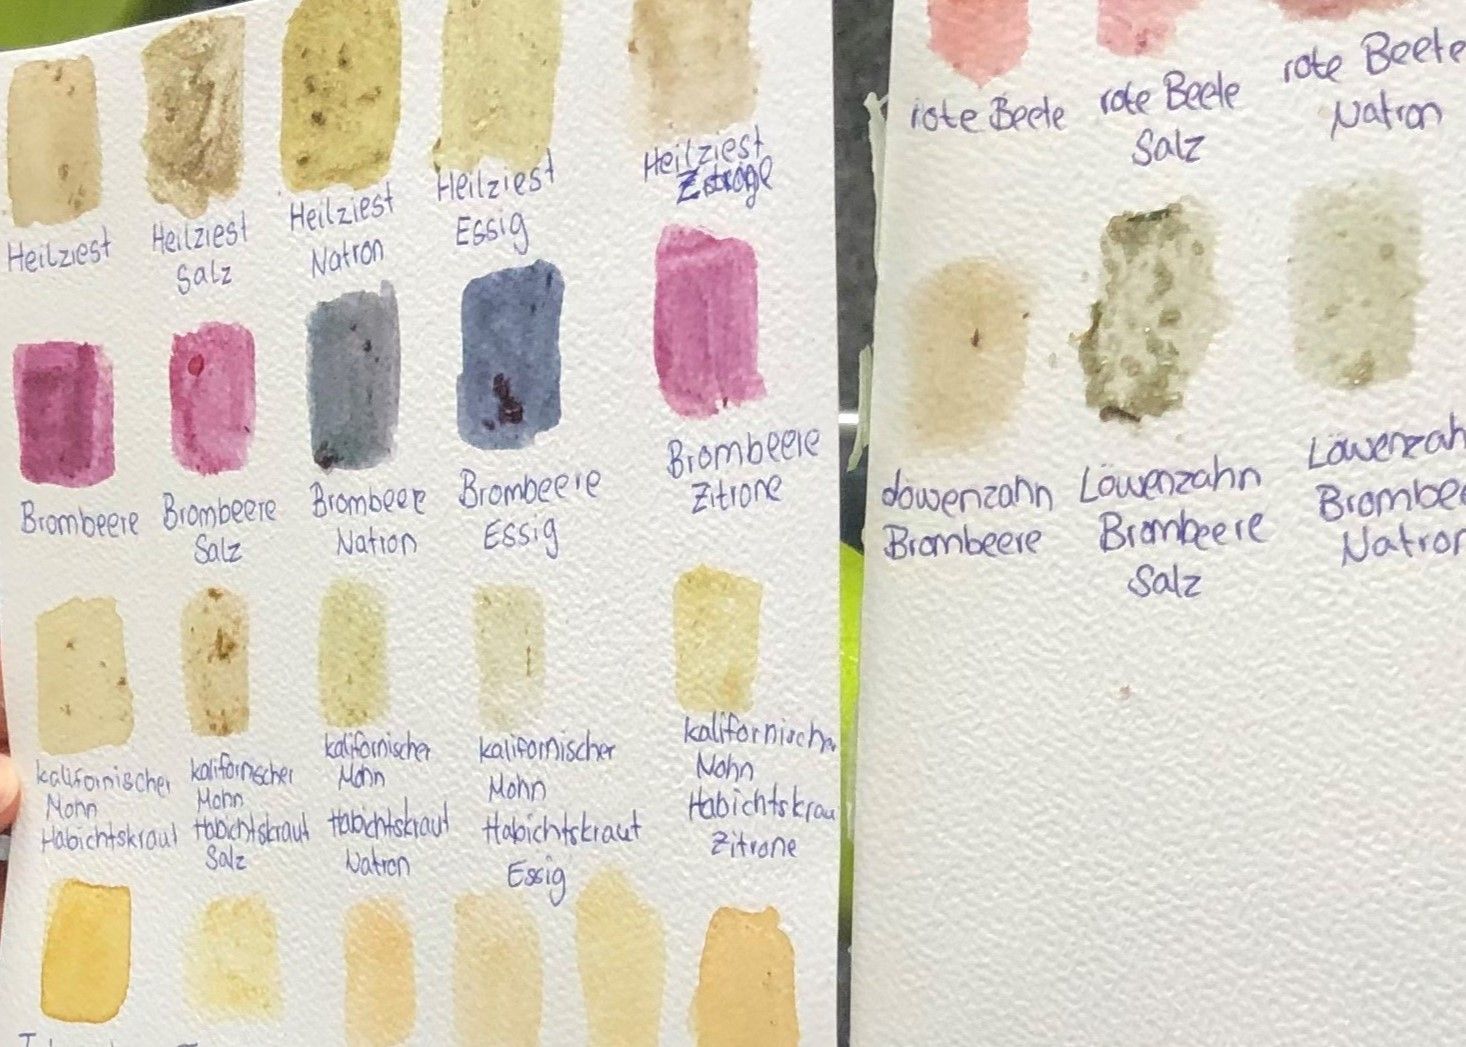 Heilziest
Heilziest
Salz
Heilziest
Natron
Heilziest
Essig
Heilziest
Brombeere
Brombeere
Salz
Brombeere
Natron
Brombeere
Essig
Brombeere
Zitrone
kalifornischer
Mohn
Habichtskraut
kalifornischer
Mohn
Habichtskraut
Salz
kalifornischer
Mohn
Habichtskraut
Natron
kalifornischer
Mohn
Habichtskraut
Essig
kalifornischer
Mohn
Habichtskrau
Zitrone
rote Beete
rote Beete
Salz
rote Beete
Natron
Löwenzahn
Brombeere
Löwenzahn
Brombeere
Salz
Löwenzah
Brombee
Natron